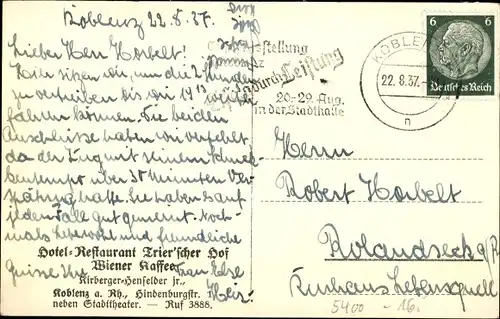 Koblenz 22.8.37.
Lieber Herr Horbelt!
Hier sitzen wir, um die 2 Stunden
zu vertreiben bis wir 14¹³ weiter
fahren können. Die beiden
Anschlüsse haben wir verfehlt,
da der Zug mit seinem Schnek-
kentempo über 30 Minuten Ver-
spätung hatte. Sie haben es auf
jeden Fall gut gemeint. Noch-
mals
und freundliche
Grüsse Ihre Frau Else
Hotel-Restaurant Trier'scher Hof
Wiener Kaffee
Kirberger-Henfelder jr.,
Koblenz a. Rh., Hindenburgstr. 1
neben Stadttheater. — Ruf 3888.
stellung
durch Leistung
20.-29. Aug.
in der Stadthalle
KOBLEN
22.8.37.
n
6 6
Deutsches Reich
Herrn
Robert Horbelt
Rolandseck a/Rh
Kurhaus Lebensquell
5400 -16.